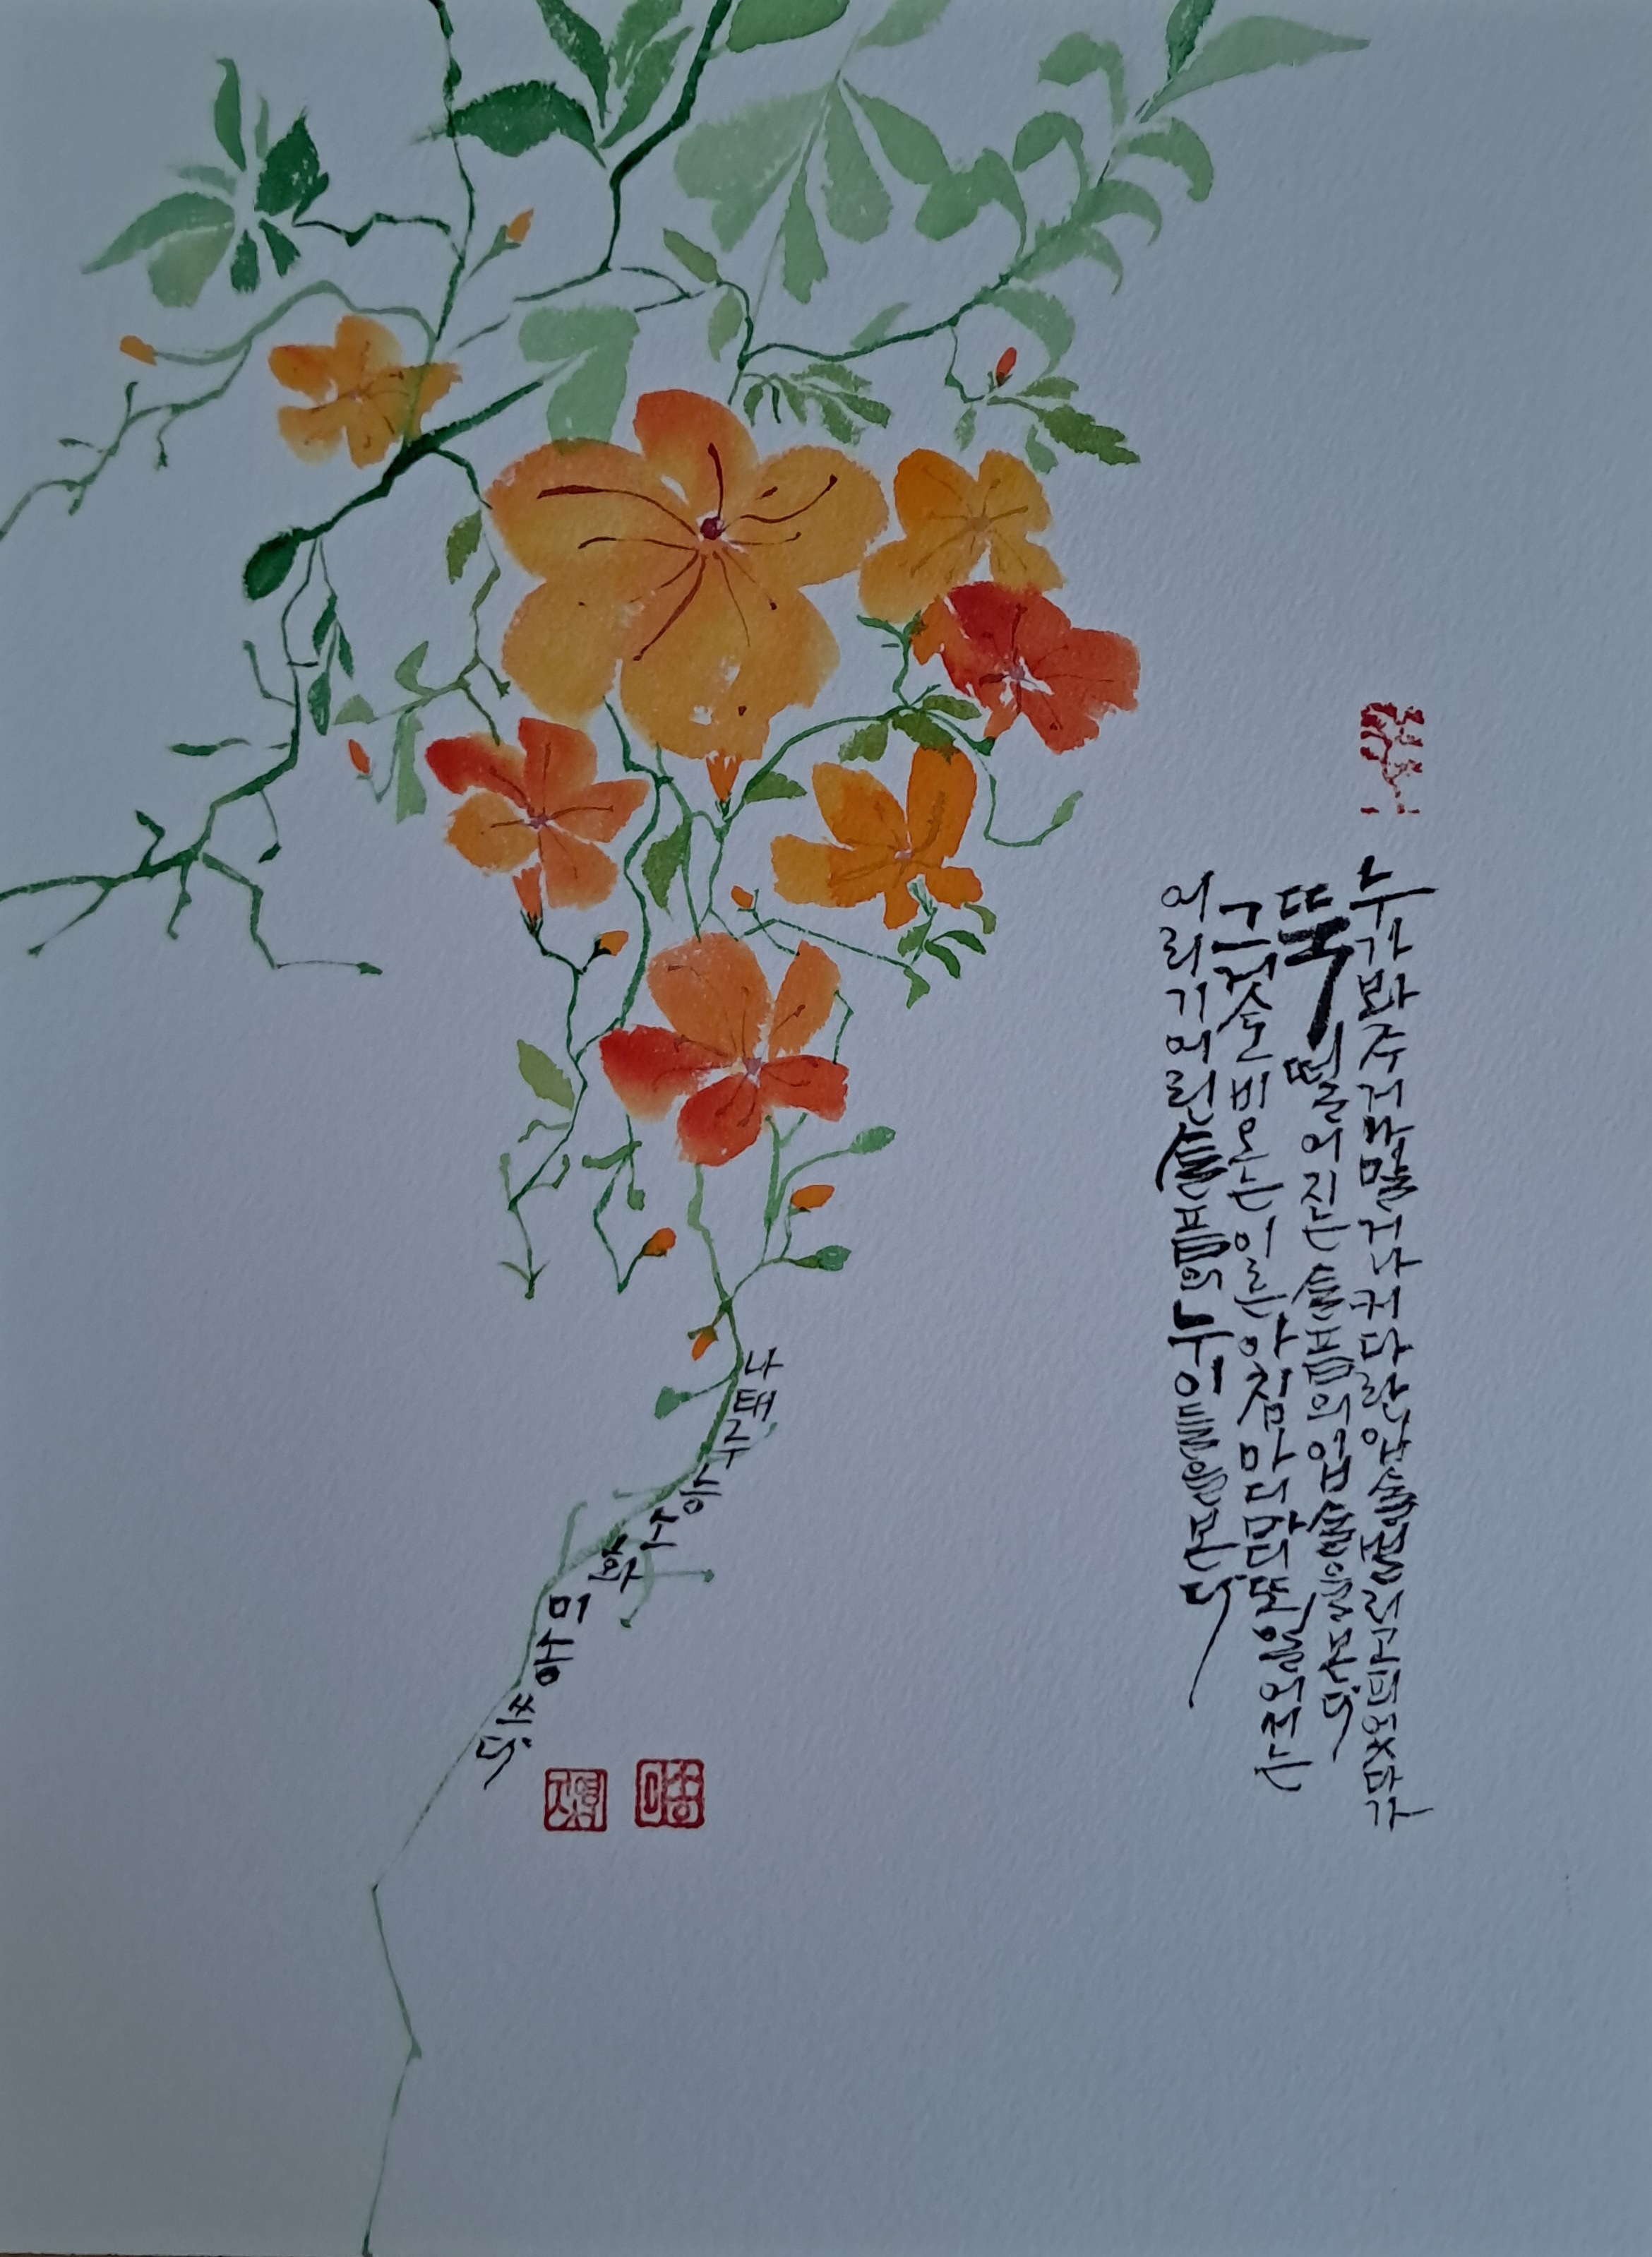 누가봐주거나말거나커다란입술벌리고피었다가
뚝떨어지는슬픔의입술을본다
그것도비오는이른아침마디마디또일어서는
어리기어린슬픔의누이들을본다
나태주 능소화 쓰다